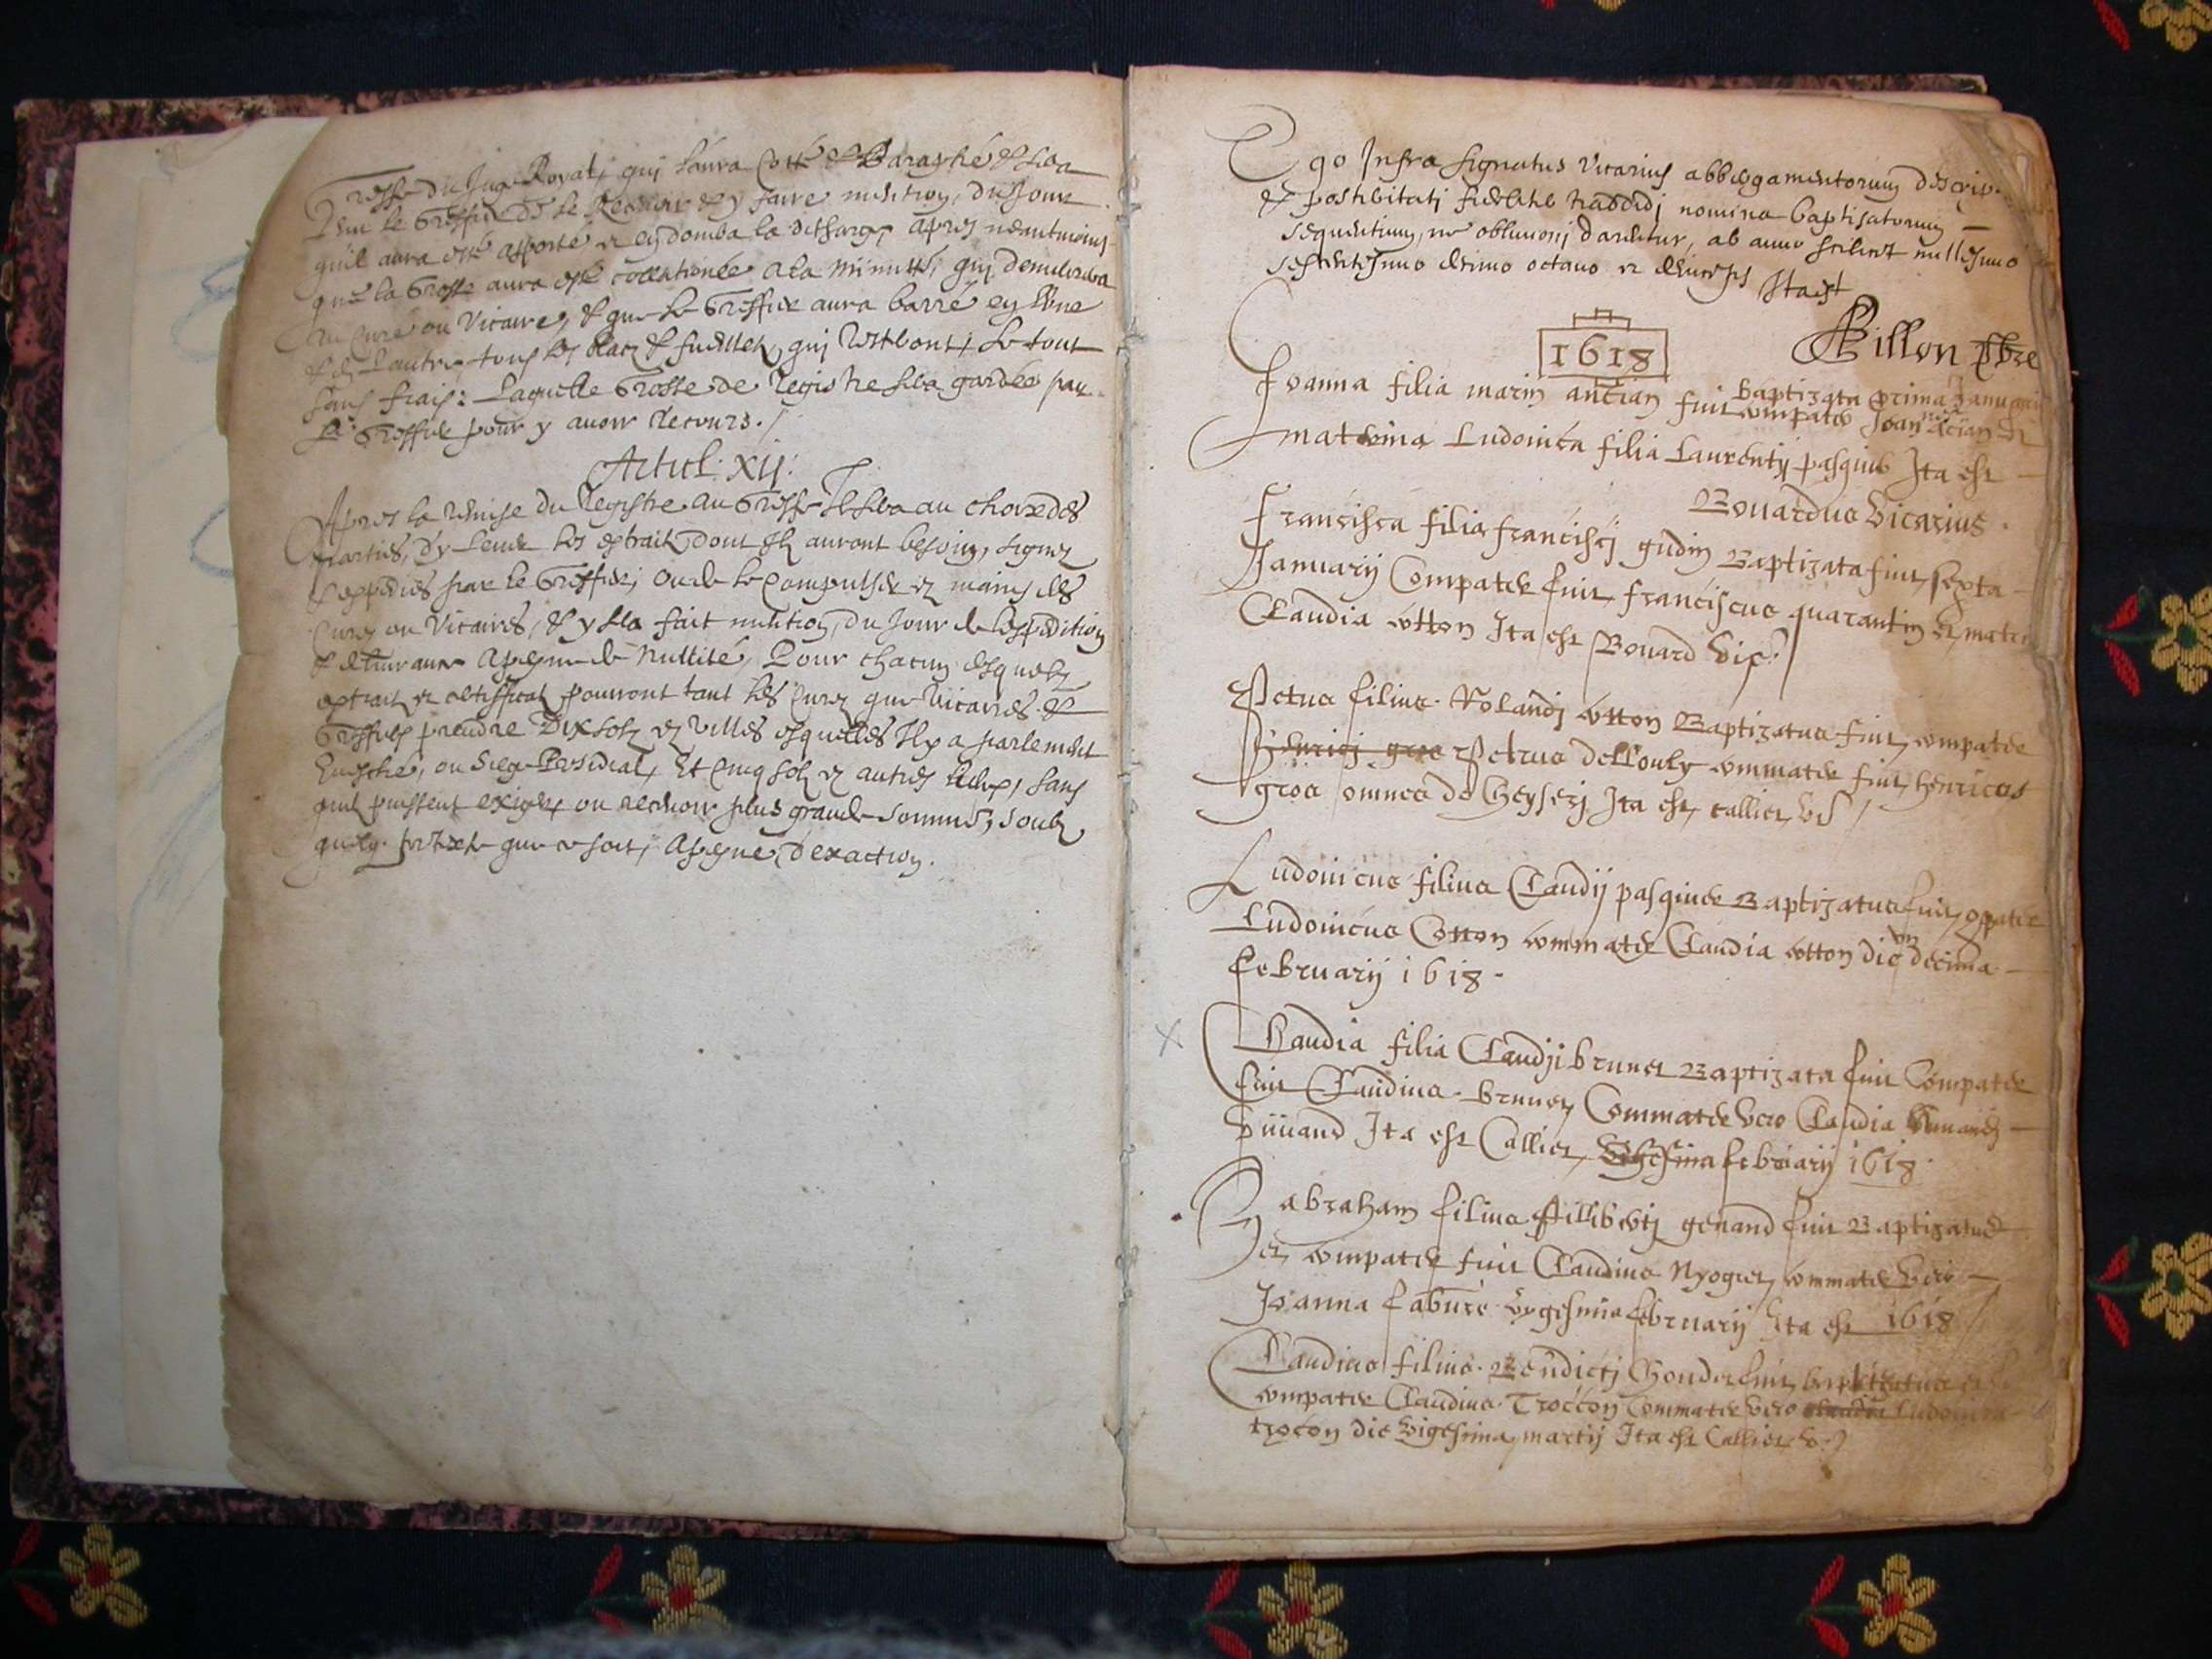 Greffe du Juge Royal, qui l'aura cotté & Paraphé & sera
tenu le Greffier de le Recevoir & y faire mention, du Jour
qu'il aura esté apporté et en donra la descharge, apres neantmoins
que la Grosse aura esté collationée a la Minutte, qui demeurera
au Curé ou Vicaire, & que le Greffier aura barré en l'une
& en l'autre, tous les blacz & feuilletz, qui resteront, Le tout
sans frais: Laquelle Grosse de Registre sera gardée par
le Greffier pour y avoir Recours./
Articl: XII:
Apres la remise du Registre au Greffe Il sera au choix des
Parties, d'y lever les extraitz dont Ilz auront besoing, signez
& expediés par le Greffier, ou de le compulser ez mains des
Curez ou Vicaires, & y sera fait mention, du Jour de l'expedition
& delivrance a peyne de Nullité, Pour chacun desquelz
extraitz et certifficatz pouvront tant les Curez que Vicaires &
Greffiers prendre Dix solz ez villes esquelles Il y a parlement
Evesché, ou Siege Presidial, Et Cinq solz ez autres lieux, sans
quilz puissent exiger ou recevoir plus grande somme, soubz
quelq. pretexte que ce soit, a peyne d'exaction.
Ego Infra signatus Vicarius
& posteritati fideliter traddidj nomina baptisatorum
sequentium, ne oblivionj darentur, ab anno scilicet millesimo
sexcentesimo decimo octavo et deinceps Ita est
Billon Pbre
1618
Baptizata prima Januarij
Joanna filia marin ancian fuit compater Joannes acian et
matrina Ludovica filia Laurentij pasquier Ita est
Bouardus Vicarius.
Francisca filia franciscj gudin Baptizata fuit, sexta
Januarij Compater fuit, franciscus quarantin et matri
Claudia cotton Ita est Bouard Vic.
Petrus filius Rolandj cotton Baptizatus fuit, compater
Henricj gros Petrus dellouly commater fuit, henricus
gros omnes de Cheysery Ita est, callier, V
Ludovicus filius Claudij pasquier Baptizatus fuit, cpater
Ludovicus Cotton commater Claudia cotton die un decima
februarij 1618.
Claudia filia Claudji brunet Baptizata fuit Compater
fuit Claudius brunet, Commater vero Claudia
buuand Ita est Callier, februarij 1618.
abraham filius fillibertj genand fuit Baptizatus
et, compater fuit Claudius Nyogret, commater vero
Joanna fabure vigesima februarij Ita est 1618
Claudius filius Benedictj Gonder fuit, baptizatus
compater Claudius Troccon Commater vero Ludovica
trocon die vigesima, martij Ita est Callier, V.